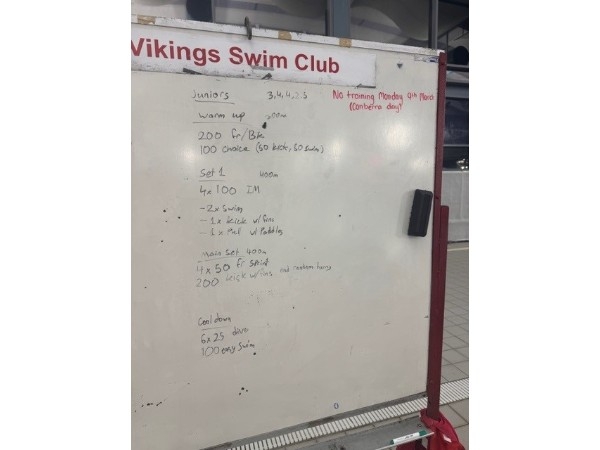 Vikings Swim Club
Juniors 3,4,4,2,3
No training Monday 9th March
(Canberra day)
Warm up 300m
200 fr/Bk
100 choice (50 kick, 50 swim)
Set 1 400m
4x100 IM
-2x Swim
-1x kick w/fins
-1x Pull w/ Paddles
Main Set 400m
4x50 fr Sprint
200 kick w/fins
Cool down
6x25 dive
100 easy swim